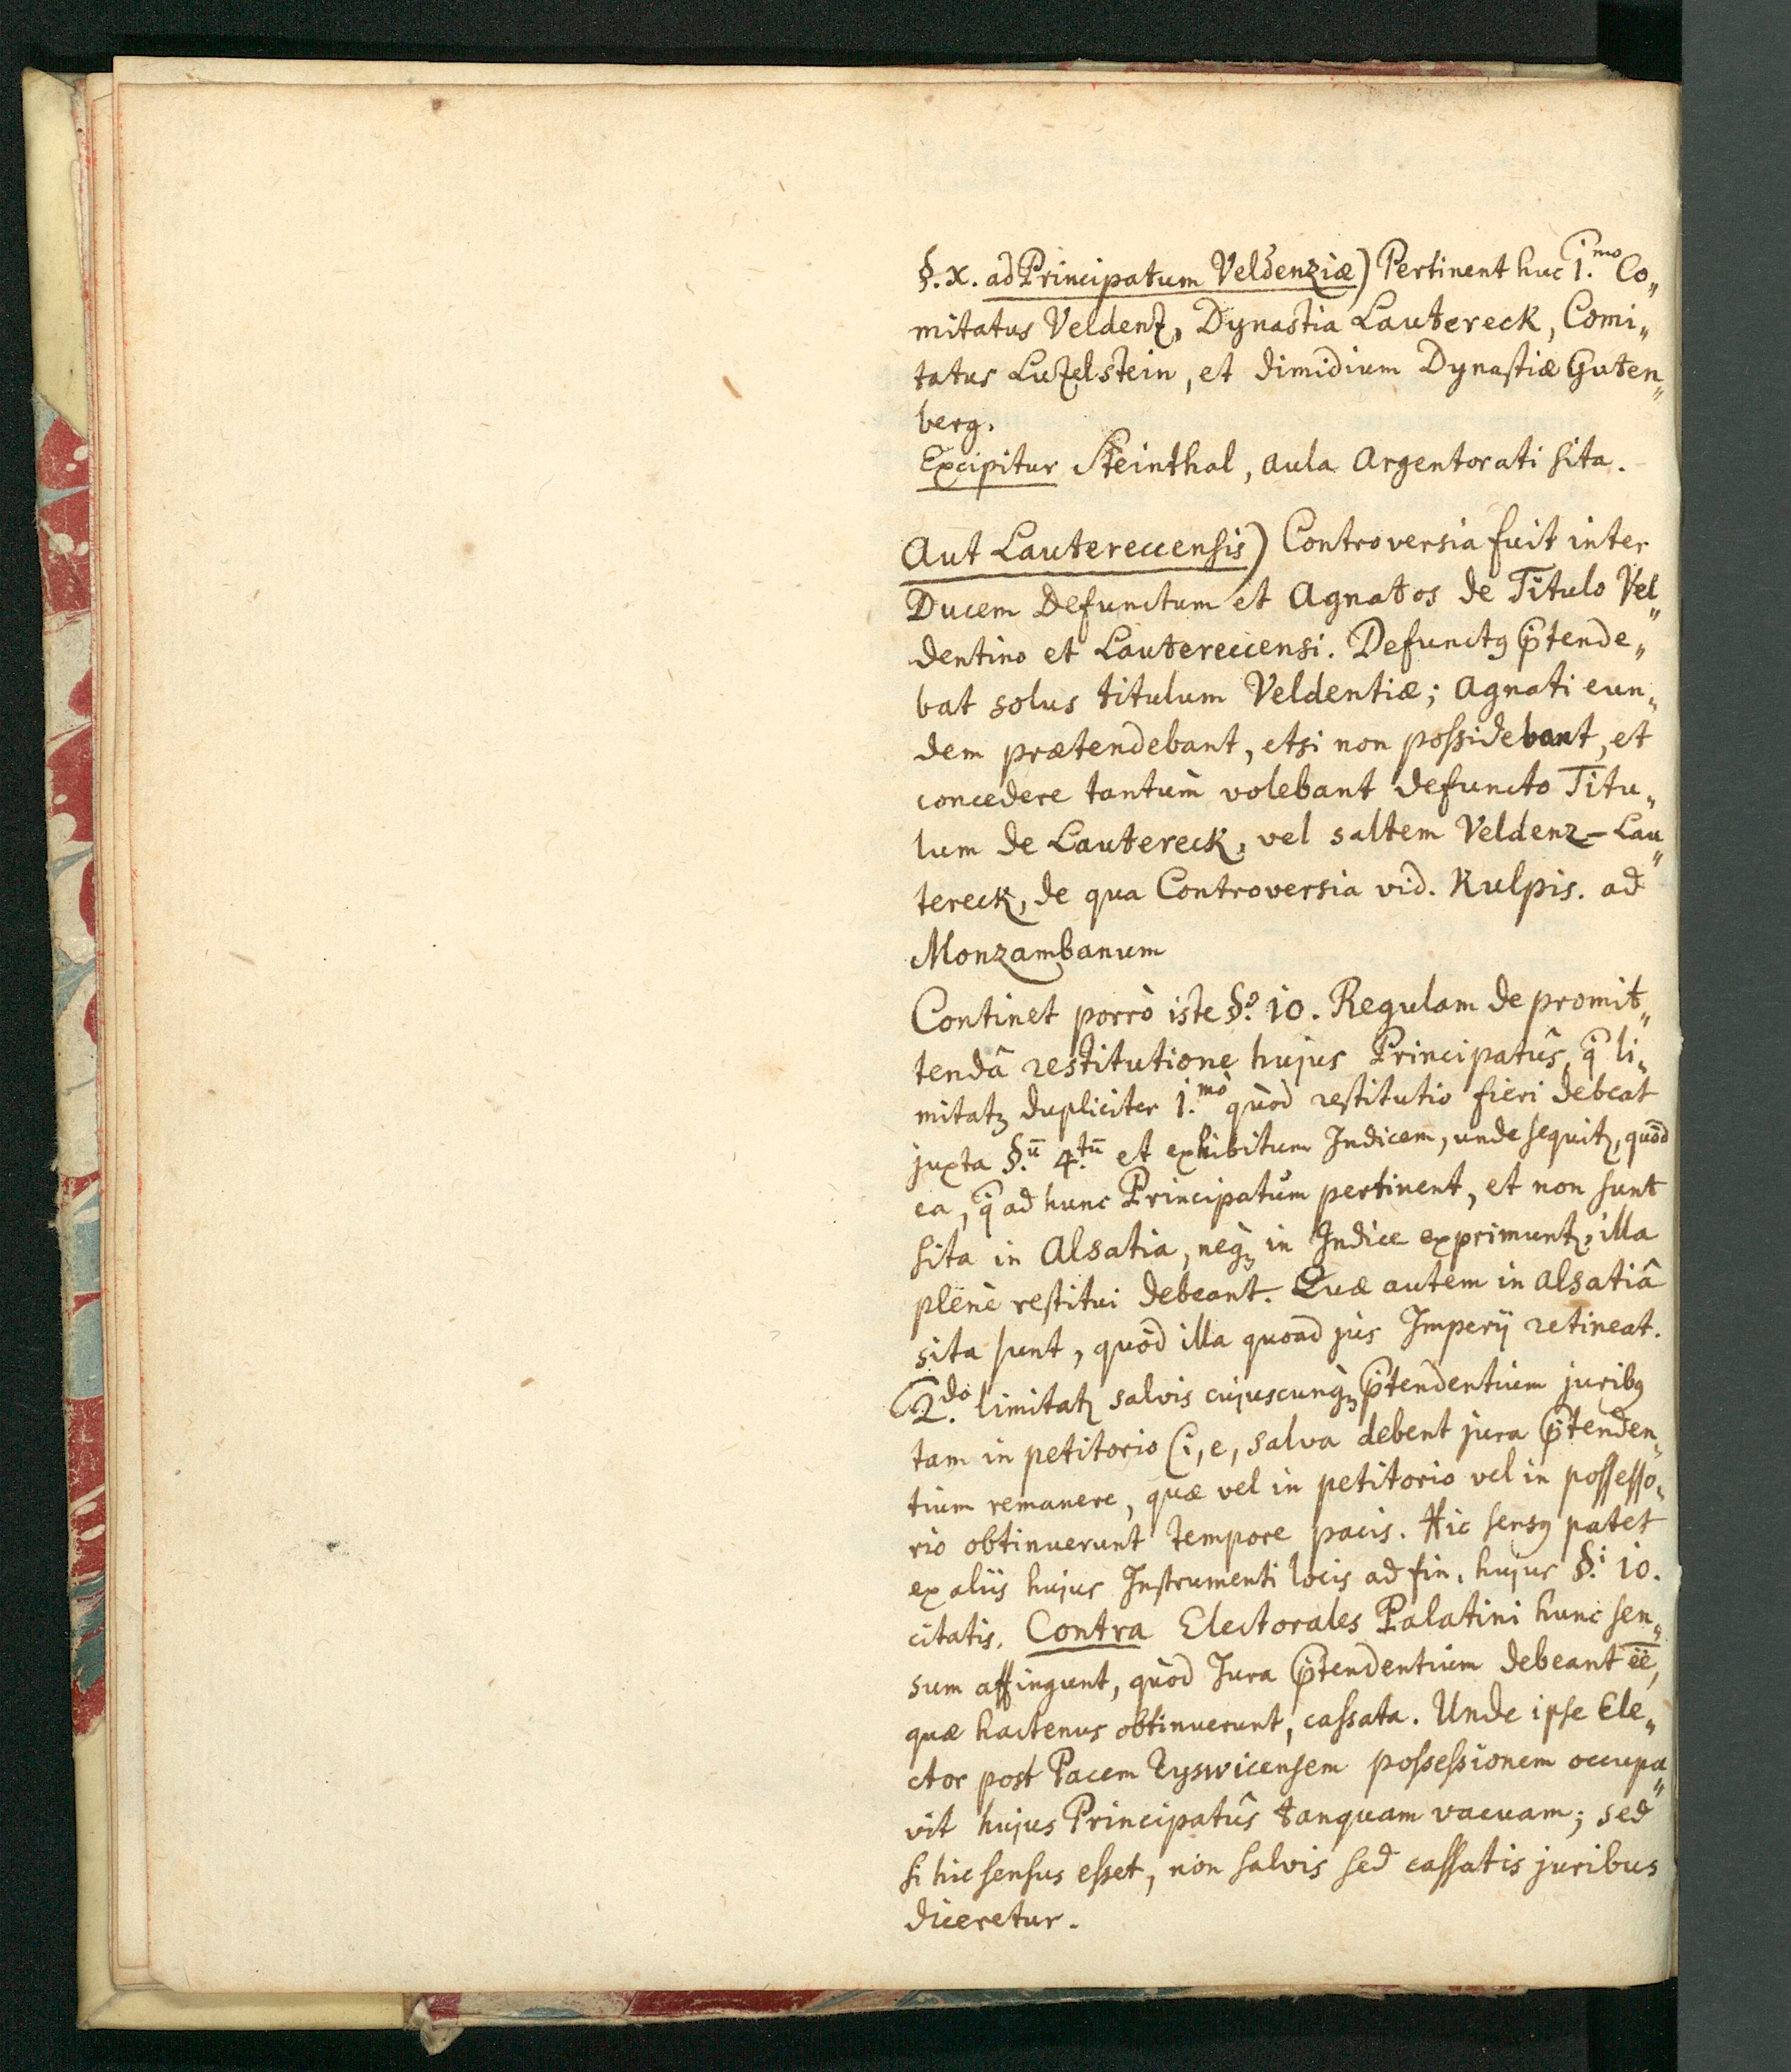 §. X. ad Principatum Veldenziæ) Pertinent huc 1.mo Co„
mitatus Veldentz, Dynastia Lautereck, Comi„
tatus Lutzelstein, et dimidium Dynastiæ Guten„
berg.
Excipitur Steinthal, aula Argentorati sita.
Aut Lautereccensis) Controversia fuit inter
Ducem Defunctum et Agnatos de Titulo Vel„
dentino et Lautereccensi. Defunctꝰ p̄tende„
bat solus titulum Veldentiæ; Agnati eun„
dem prætendebant, etsi non possidebant, et
concedere tantùm volebant defuncto Titu„
lum de Lautereck, vel saltem Veldenz-Lau„
tereck, de qua Controversia vid. Kulpis. ad
Monzambanum
Continet porrò iste §.º 10. Regulam de promit„
tendâ restitutione hujus Principatûs, q̄ li„
mitatꝛ dupliciter 1.mò quòd restitutio fieri debeat
juxta §.ū 4.tū et exhibitum Indicem, unde sequitꝛ, quòd
ea, q̄ ad hunc Principatum pertinent, et non sunt
sita in Alsatia, neqꝫ in Indice exprimuntꝛ, illa
plenè restitui debeant. Quæ autem in Alsatiâ
sita sunt, quòd illa quoad jus Imperij retineat.
2.do limitatꝛ salvis cujuscunqꝫ p̄tendentium juribꝰ
tam in petitorio (i, e, salva debent jura p̄tenden„
tium remanere, quæ vel in petitorio vel in possesso„
rio obtinuerunt tempore pacis. Hic sensꝰ patet
ex aliis hujus Instrumenti locis ad fin. hujus §.i 10.
citatis. Contra Electorales Palatini hunc sen„
sum affingunt, quòd Jura p̄tendentium debeant ēē,
quæ hactenus obtinuerunt, cassata. Unde ipse Ele„
ctor post Pacem Ryswicensem possessionem occupa„
vit hujus Principatûs tanquam vacuam; sed
si hic sensus esset, non salvis sed cassatis juribus
diceretur.